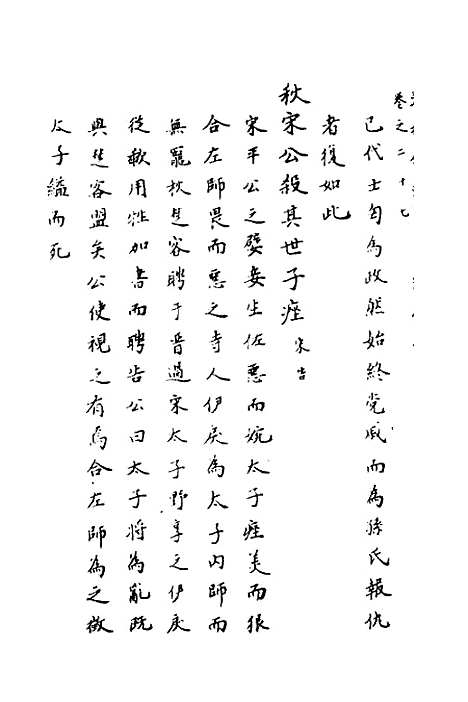 卷之二十七
已代士匄為政然始終党戚而為孫氏報仇
者復如此
秋宋公殺其世子痤 宋告
宋平公之嬖妾生佐惡而婉太子痤美而狠
合左師畏而惡之寺人伊戾為太子內師而
無寵秋楚客聘于晋過宋太子野享之伊戾
從歃用牲加書而聘告公曰太子将為亂既
與楚客盟矣公使視之有焉合左師為之徴
太子縊而死